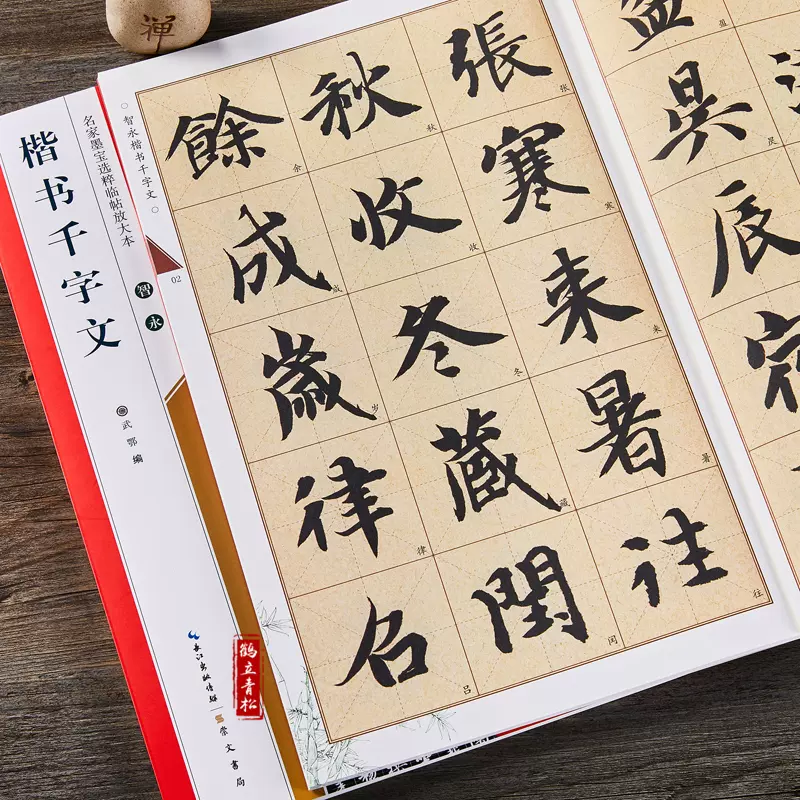 禅
名家墨宝选粹临帖放大本
楷书千字文
智永
武鄂 编
长江出版传媒
崇文书局
鹤立青松
○智永楷书千字文○
02
盈昃辰宿
盈
昃
張寒来暑往
张
寒
来
暑
往
秋收冬藏閏
秋
收
冬
藏
闰
餘成歲律吕
余
成
岁
律
吕